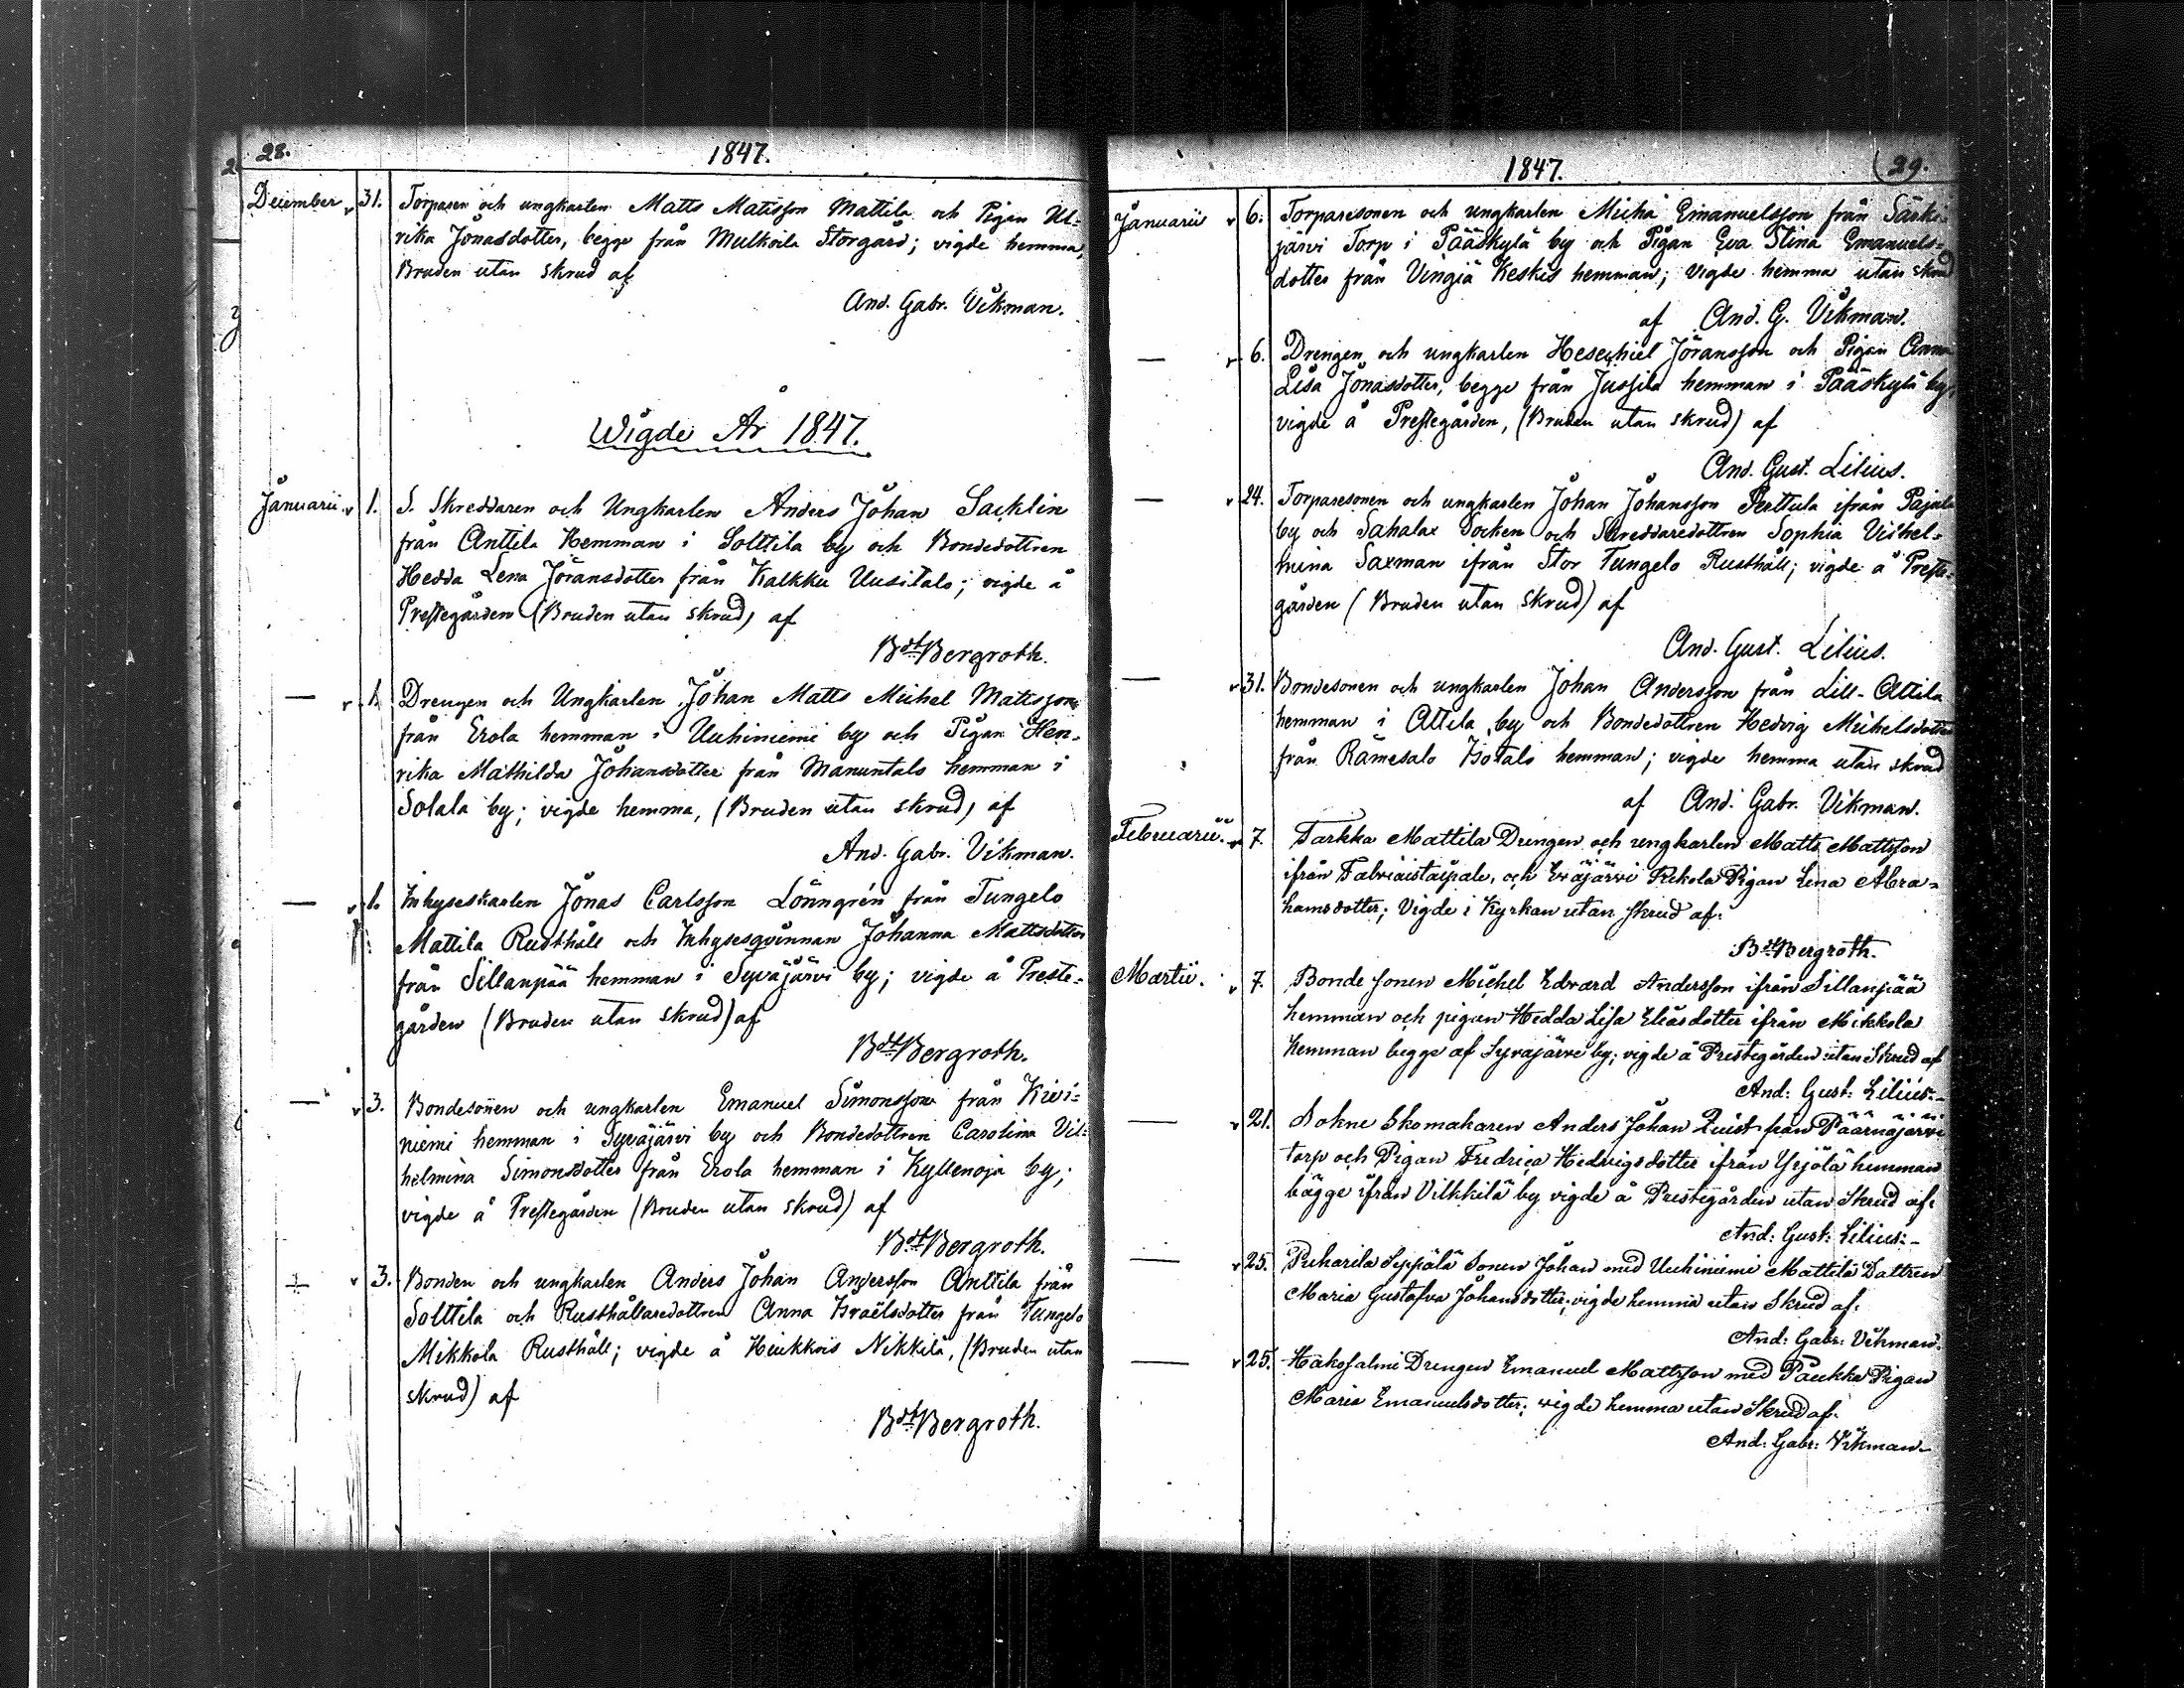 28.
1847.
December 31. Torparen och ungkarlen Matts Matisson Mattila och Pigan Ul=
rika Jönasdotter, begge från Mulkoila Storgård; vigde hemma,
Bruden utan skrud af
And. Gabr. Vikman.
Wigde År 1847.
Januarii. v 1. S. Skreddaren och Ungkarlen Anders Johan Sacklin
från Anttila Hemman i Solttila by och Bondedottren
Hedda Lena Jöransdotter från Kalkku Uusitalo; vigde å
Prestegården (Bruden utan skrud) af
Bdt Bergroth.
— v 1. Drengen och Ungkarlen Johan Matts Michel Mattsson
från Erola hemman i Uuhiniemi by och Pigan Hen=
rika Mathilda Johansdotter från Manuntalo hemman i
Solala by; vigde hemma, (Bruden utan skrud) af
And. Gabr. Vikman.
— v 1. Inhyseskarlen Jonas Carlsson Lönngrén från Tungelo
Mattila Rusthåll och Inhysesqvinnan Johanna Mattsdotter
från Sillanpää hemman i Syväjärvi by; vigde å Preste=
gården (Bruden utan skrud) af
Bdt Bergroth.
— v 3. Bondesonen och ungkarlen Emanuel Simonsson från Kivi=
niemi hemman i Syväjärvi by och Bondedottren Carolina Vil=
helmina Simonsdotter från Erola hemman i Kyllenoja by;
vigde å Prestegården (Bruden utan skrud) af
Bdt Bergroth.
— v 3. Bonden och ungkarlen Anders Johan Andersson Anttila från
Solttila och Rusthållaredottren Anna Israëlsdotter från Tungelo
Mikkola Rusthåll; vigde å Nikkilä, (Bruden utan
skrud) af
Bdt Bergroth.
1847.
29.
Januarii v 6. Torparesonen och ungkarlen Micha Emanuelsson från Särki=
järvi Torp i Pääskylä by och Pigan Eva Stina Emanuels=
dotter från Vingiä Keskis hemman; vigde hemma utan skrud
af And. G. Vikman.
— v 6. Drengen och ungkarlen Hesechiel Jöransson och Pigan Anna
Lisa Jonasdotter, begge från Jussila hemman i Pääskylä by,
vigde å Prestegården, (Bruden utan skrud) af
And. Gust. Lilius.
— v 24. Torparesonen och ungkarlen Johan Johansson Perttula ifrån Pajula
by och Sahalax Socken och Skreddaredottren Sophia Vilhel=
mina Saxman ifrån Stor Tungelo Rusthåll; vigde å Preste=
gården (Bruden utan skrud) af
And. Gust. Lilius.
— v 31. Bondesonen och ungkarlen Johan Andersson från Lill-Attila
hemman i Attila by och Bondedottren Hedvig Michelsdotter
från Rämesalo Isotalo hemman; vigde hemma utan skrud
af And. Gabr. Vikman.
Februarii. v 7. Tarkka Mattila Drengen och ungkarlen Matts Mattsson
ifrån och Eväjärvi Pigan Lena Abra=
hamsdotter; Vigde i Kyrkan utan Skrud af.
Bdt Bergroth.
Martii. v 7. Bonde sonen Michel Edvard Andersson ifrån Sillanpää
hemman och pigan Hedda Lisa Eliasdotter ifrån Mikkola
hemman begge af Syväjärvi by; vigde å Prestegården utan Skrud af
And: Gust: Lilius:-
— v 21. Sokne Skomakaren Anders Johan Quist från Päärnäjärvi
torp och Pigan Fredrica Hedvigsdotter ifrån Yrjölä hemman
bägge ifrån Vilkkilä by vigde å Prestegården utan Skrud af.
And: Gust: Lilius:-
— v 25. Puharila Seppälä Sonen Johan med Uuhiniemi Mattila Dottren
Maria Gustafva Johansdotter; vigde hemma utan Skrud af.
And: Gabr: Vikman.
— v 25. Hakosalmi Drengen Emanuel Mattsson med Paukku Pigan
Maria Emanuelsdotter; vigde hemma utan Skrud af.
And: Gabr: Vikman-